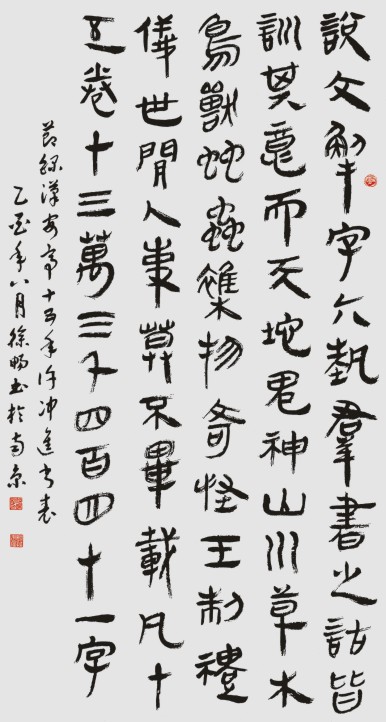 說文解字六埶羣書之詁皆
訓其意而天地鬼神山川草木
鳥獸䖵蟲雜物奇怪王制禮
儀世閒人事莫不畢載凡十
五卷十三萬三千四百四十一字
節録漢安帝十五年許沖進書表
乙酉年八月徐暢書於南京